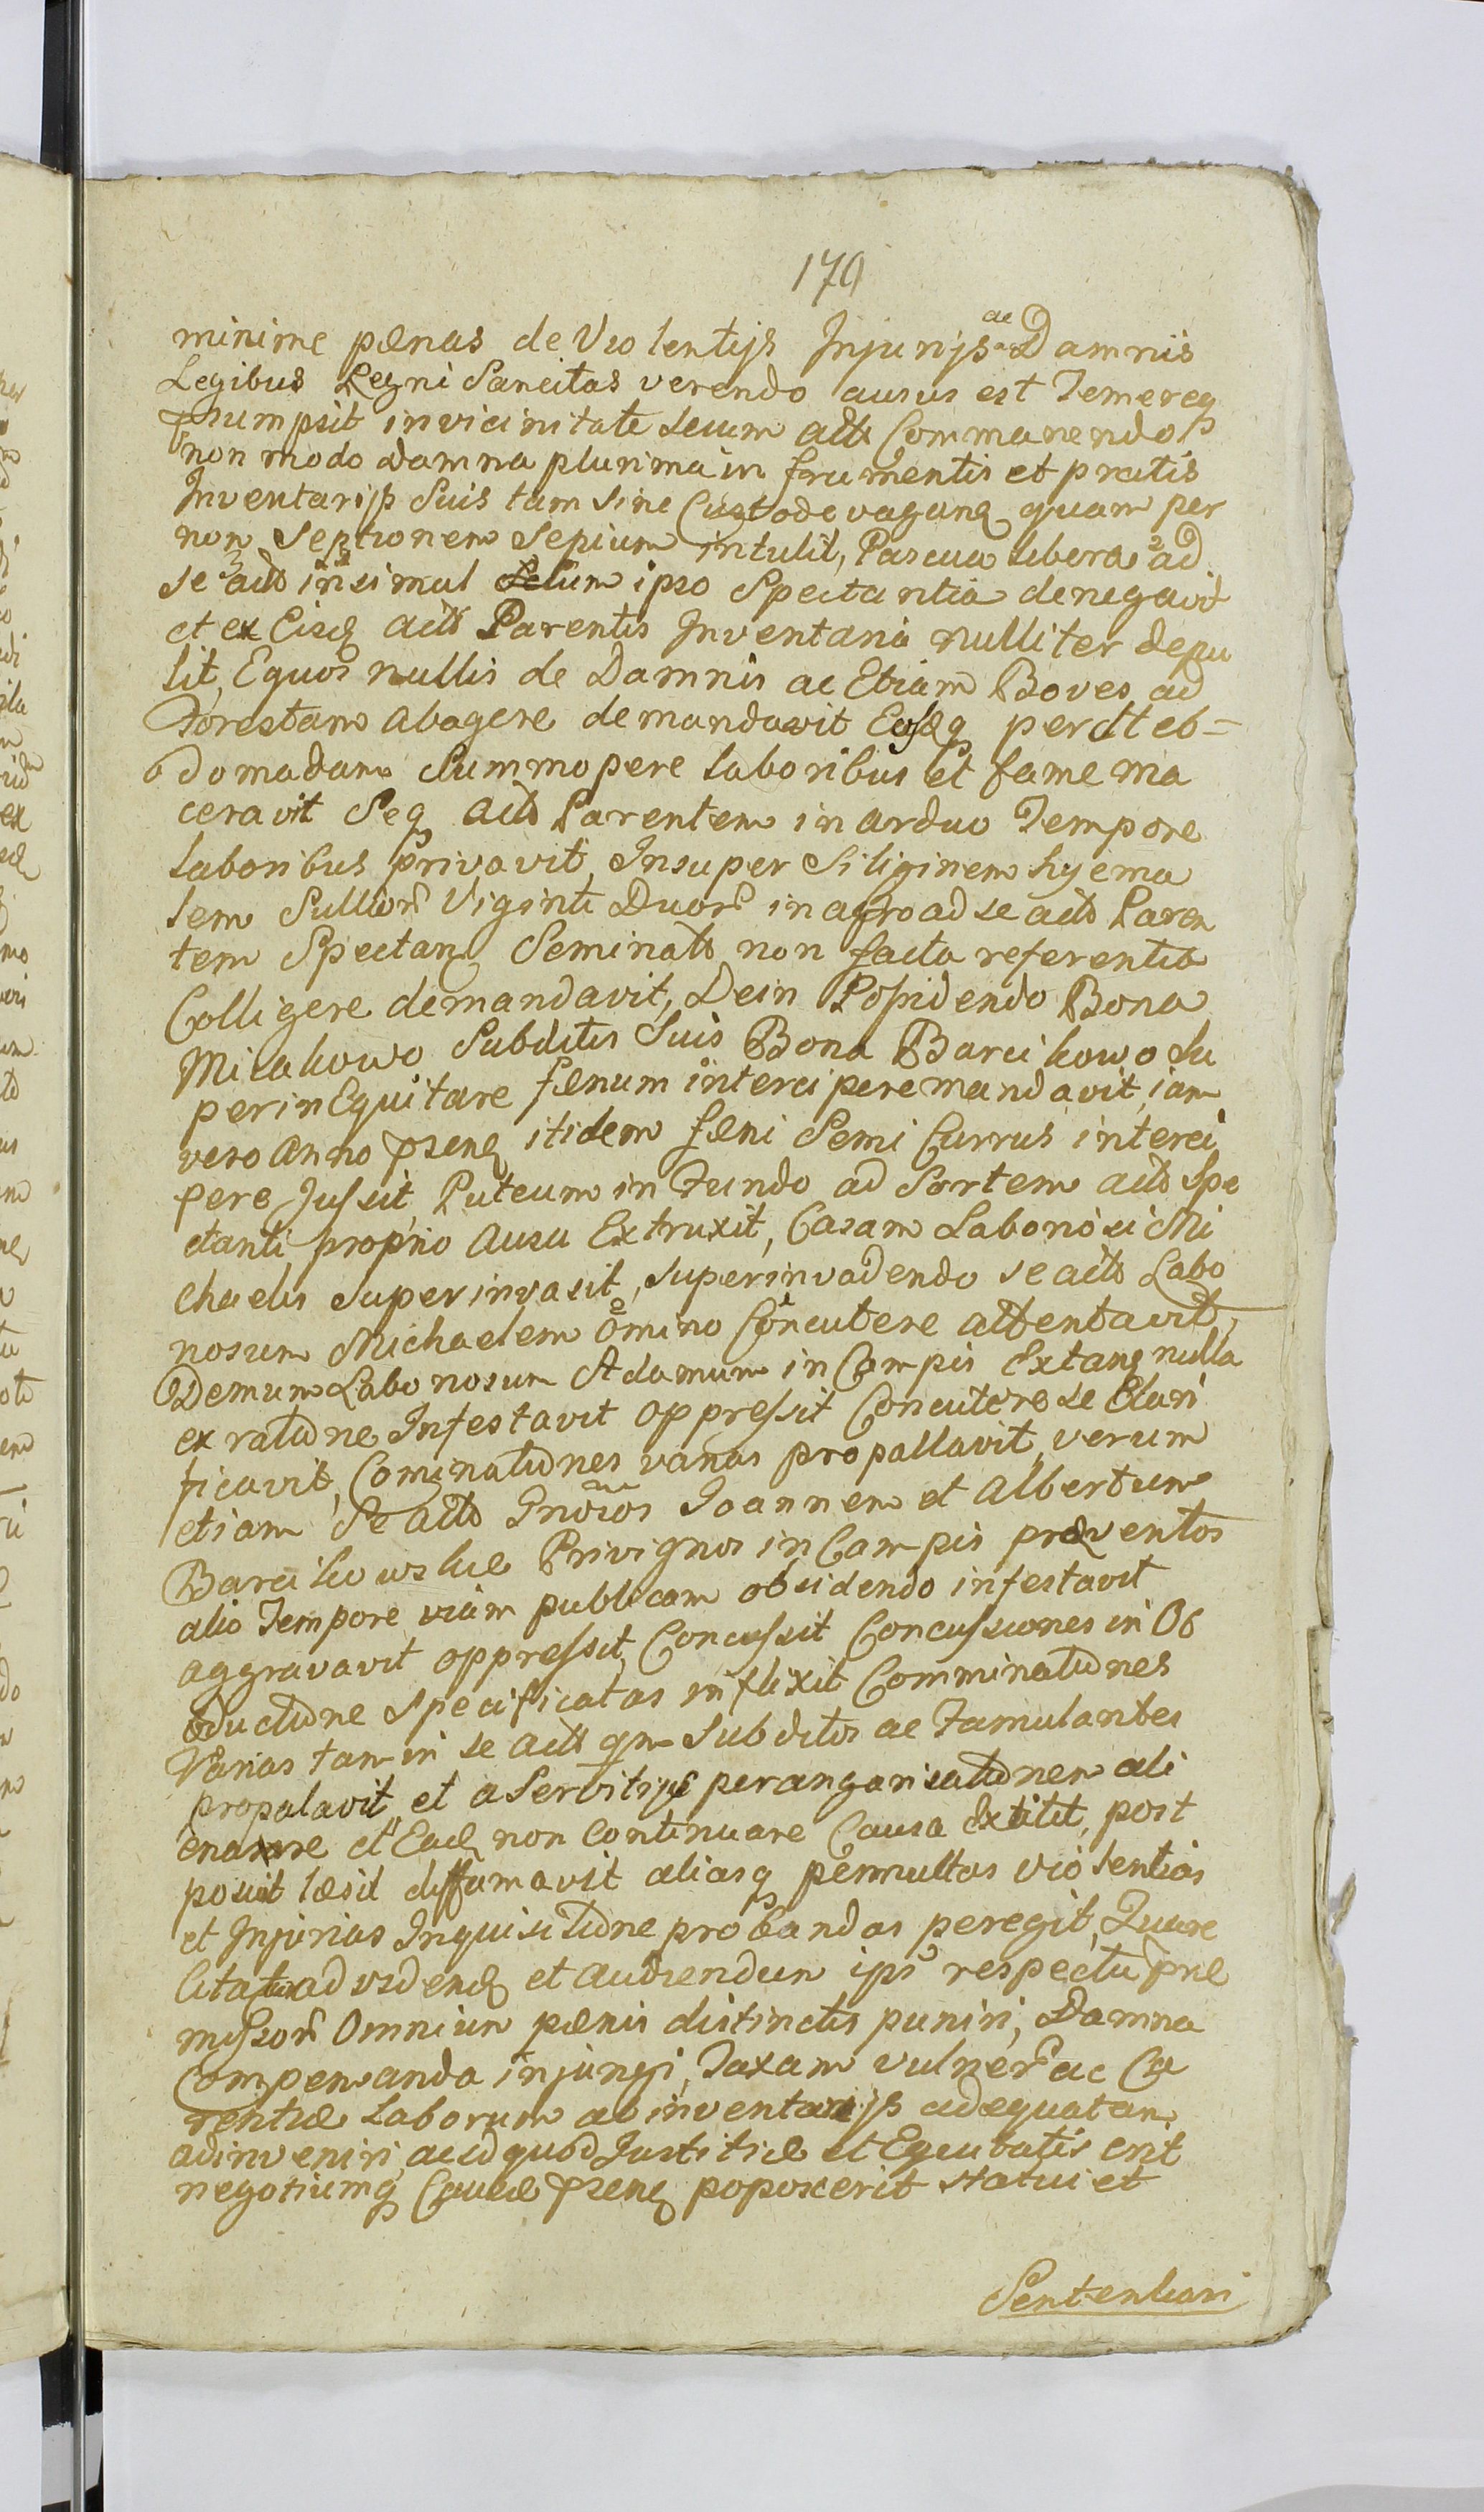 170
minime pænas de Violentijs Injurijs ac Damnis
Legibus Regni Sancitas verendo ausus est Temereq
psumpsit in vicinitate secum actt Commanendo
non modo Damna plurima in frumentis et pratis
Inventarijs Suis tam sine Custode vagang quam per
non Septionem Sepium intulit, Pascua libera ad
se actt insimul Secum ipso Spectantia denegavit
et ex Eisd actt Parentis Inventaria nulliter depu
lit, Equos nullis de Damnis ac Etiam Boves ad
Forestam abagere demandavit Eosq per dt eb=
domadam Summopere laboribus et fame ma
ceravit Seq actt Parentem in arduo Tempore
laboribus privavit, Insuper Siliginem hyema
lem Sullior Viginti Duor in agro ad se actt Paren
tem Spectang Seminatt non facta referentia
Colligere demandavit, Dein Popidendo Bona
Milakowo Subditis Suis Bona Barcikowo Su
perinEquitare fænum intercipere mandavit, iam
vero Anno psenq itidem fæni Semi Currus interci
pere Jussit Puteum in Fundo ad Sortem actt Spe
ctanti proprio Ausu Extruxit, Casam Laboriosi Mi
chaelis superinvasit, superinvadendo se actt Labo
riosum Michaelem omino Concutere attentavit,
Demum Laboriosum Adamum in Campis Extang nulla
ex ratione Infestavit oppressit Concutere se Clari
ficavit, Cominationes varias propallavit, verum
etiam Se actt Gnosos Joannem et Albertum
Barcikowskie Privignos in Campis præventos
alio Tempore viam publicam obsidendo infestavit
aggravavit oppressit, Concussit Concussiones in Ob
ductione specificatas inflixit Comminationes
Varias tam in se actt qm Subditos ac Famulantes
propalavit, et a Servitijs perangarisationem ali
enare et Ead non Continuare Causa Extitit, post
posuit læsit diffamavit aliasq permultas violentias
et Injurias Inquisitione probandas peregit, Quare
Citatur ad vidend et audiendum ips respectu præ
missor Omnium pænis distinctis puniri, Damna
Compensanda injungi, Taxam vulner ac Ca
rentiæ laborum ac inventarijs adequatam
adinveniri, ac id quod Justitiæ et Equitatis erit
negotiumq Causæ psenq poposcerit statui et
Sententiari